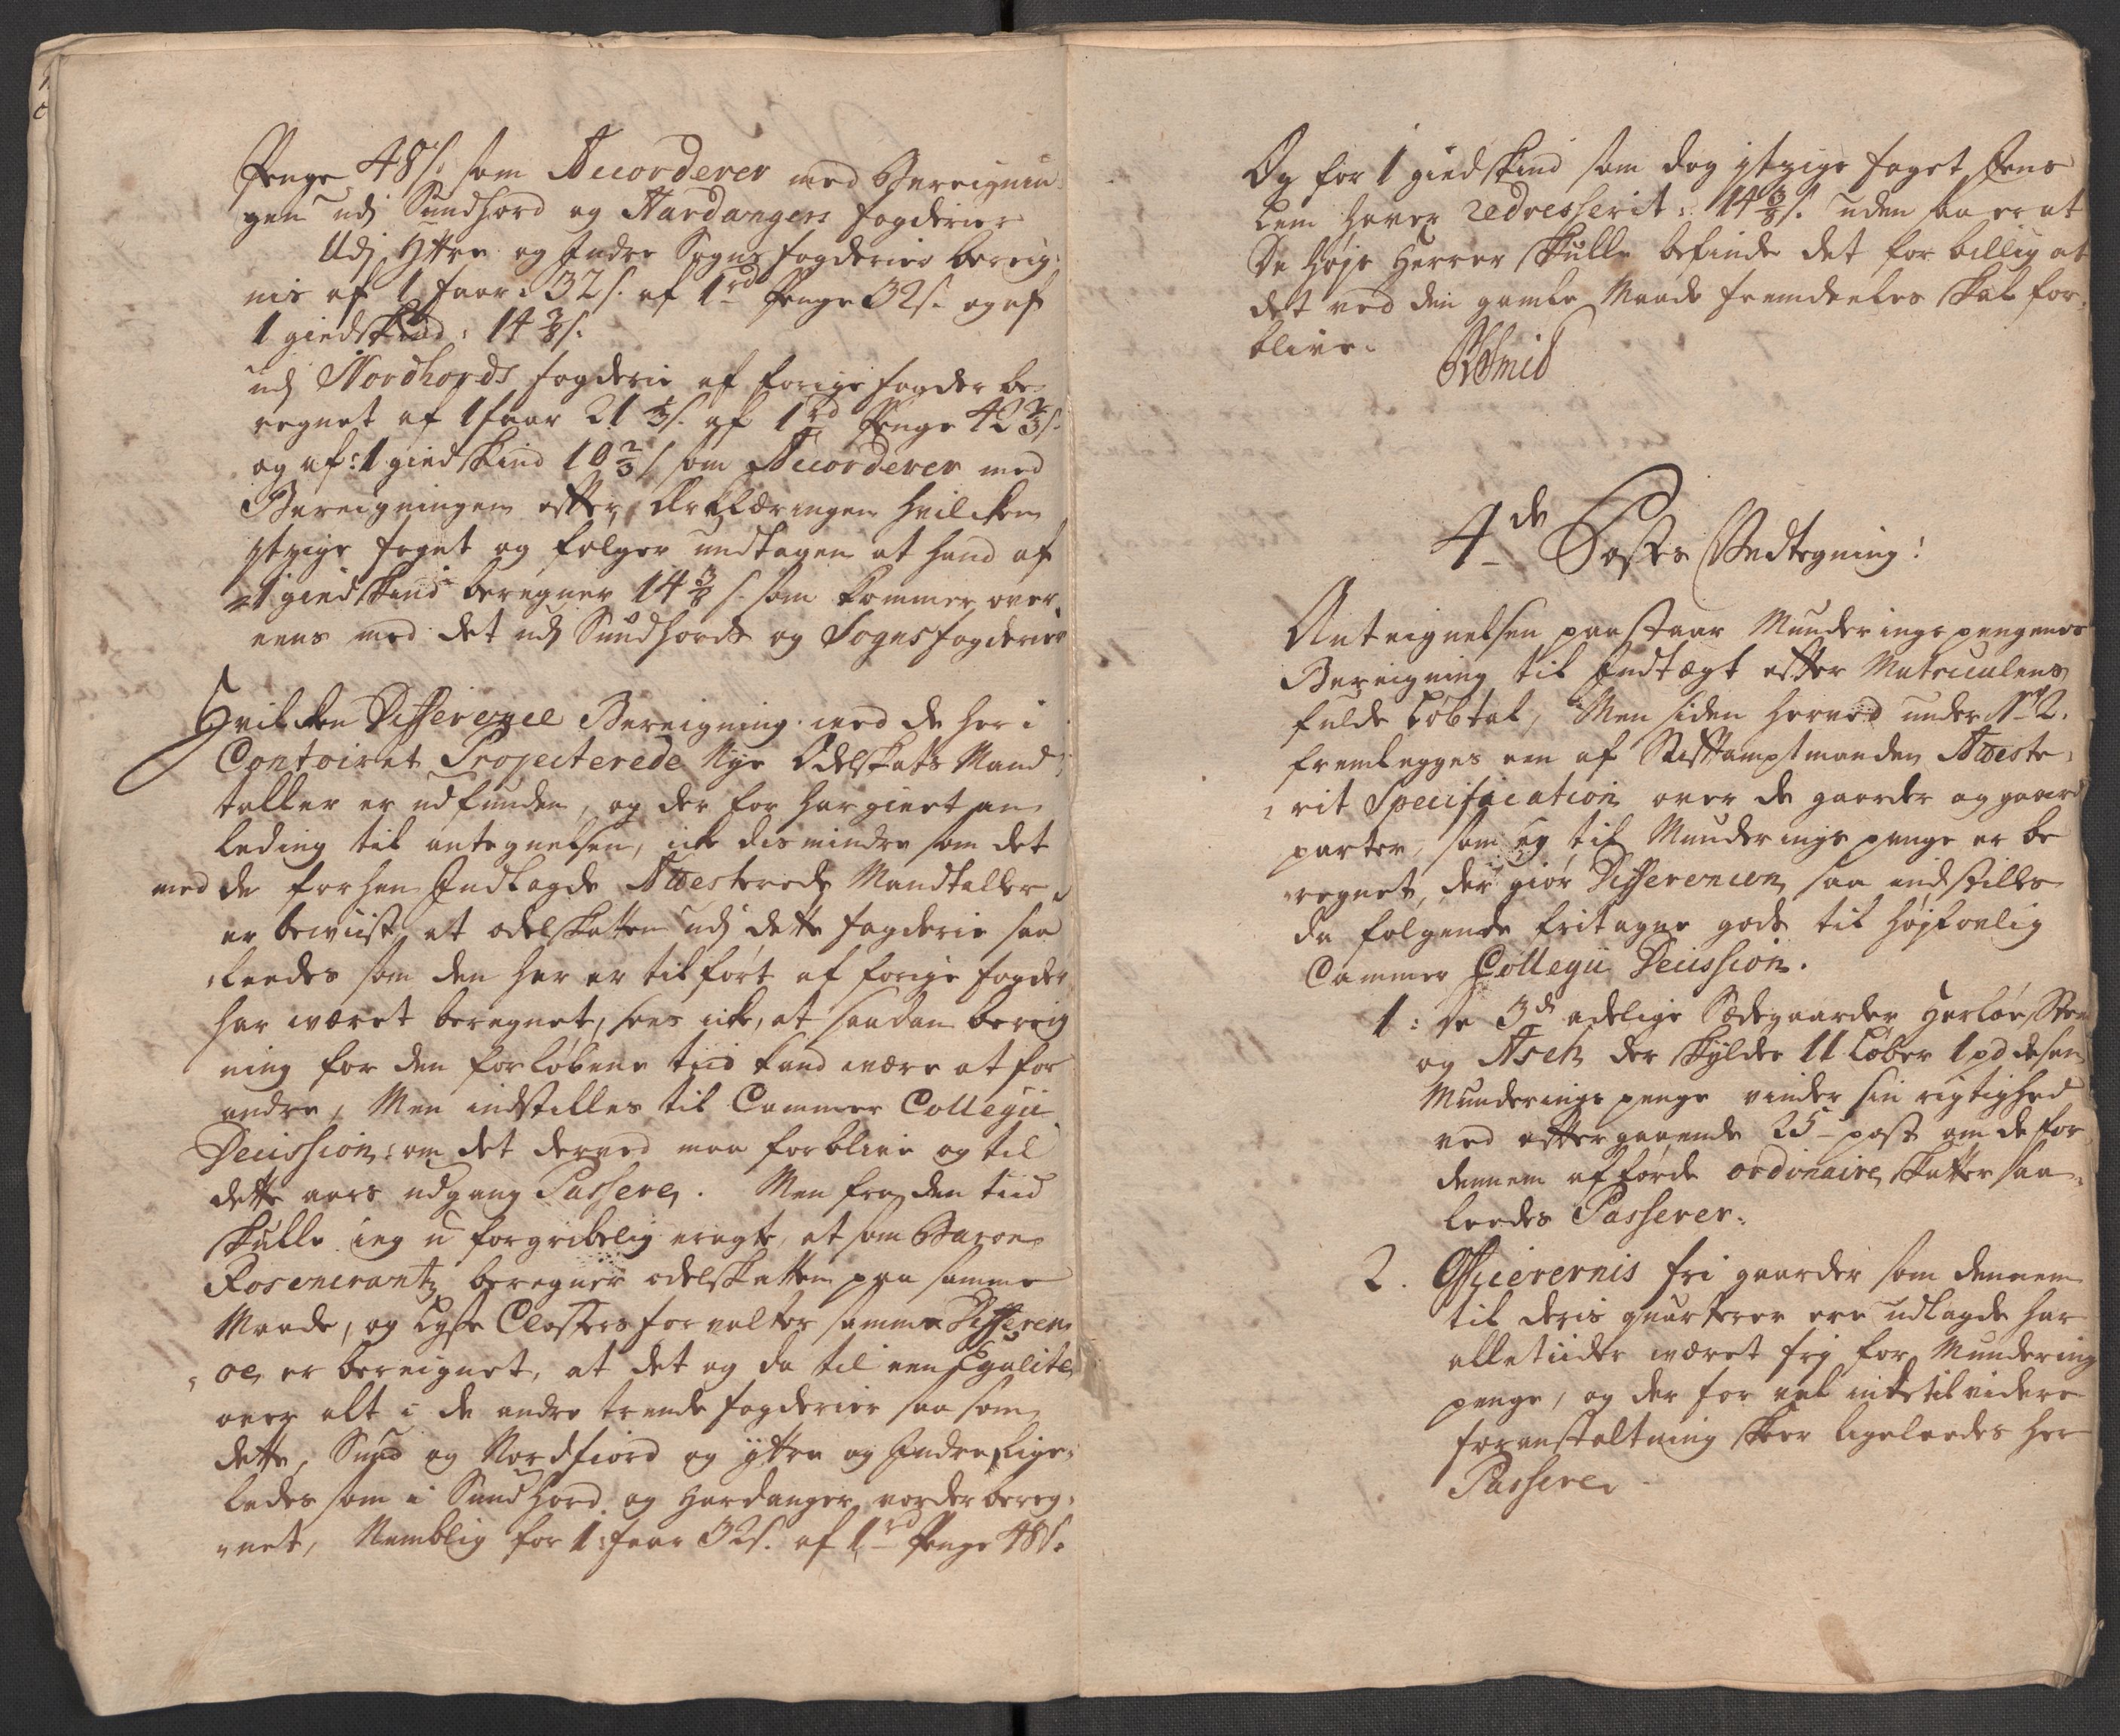 Penge 48 s: som Accorderer med Bereignin
gen udj Sundhord og Hardangers fogderier
Udj Yttre og Indre Sogns fogderier bereig-
nis af 1 faar: 32 s. af 1 rd Penge 32 s. og af
1 giedskind: 14 3/8 s.
udj Nordhords fogderie af forige fogder be-
regnet af 1 faar 21 1/3 s. af 1 rd Penge 42 2/3 s.
og af: 1 giedskind 10 2/3 s som Accorderer med
Bereigningen efter Forklæringen hvilchen
itzige foget og følger undtagen at hand af
1 giedskind beregner 14 3/8 s. som kommer over-
eens med det udj Sundhords og Sognsfogderier
Hvilcken Differenzee Bereigning ved de her i
Contoiret Projecterede Nye Odelskats Mand-
taller er udfunden, og der for har givet an-
leding til antegnelsen, icke dismindre som det
med de forhen Indlagde Attesterede Mandtaller
er beviist, at odelskatten udj dette fogderie saa-
leedes som den her er tilført af forige fogder
har været beregnet, sees icke, at saadan bereig
ning for den forløbene tiid kand være at for
andre, Men indstilles til Cammer Collegii
Decission: om det derved maa forblive og til
dette aars udgang Passere. Men fra den tiid
skulle jeg u forgribelig eragte, at som Baron
Rosencrantz beregner odelskatten paa samme
Maade, og Lyse Closters forvalter samme Differen
ce er bereignet, at det og da til een Egalite
over alt i de andre trende fogderier saa som
dette, Sund og Nordfiord og Yttre og Indre, lige-
ledes som i Sundhord og Hardanger vorder bereg-
net, Nemblig for 1 faar 32 s. af 1 rd Penge 48 s.
Og for 1 giedskind som dog itzige foget Jens
Lem haver redresserit: 14 3/8 s. uden saa er at
De høje Herrer skulle befinde det for billig at
det ved den gamle Maade fremdeeles skal for-
blive.
Smid
4de Postes Vedtegning!
Anteignelsen paastaar Munderings pengenes
Bereigning til Indtægt efter Matriculens
fulde Løbtal, Men siden herved under No 2.
fremlegges een af Stiftamptmanden Atteste-
rit Specification over de gaarder og gaard
parter, som ey til Munderings penge er be
regnet, der giør Differencen, saa indstilles
da følgende fritagne gods til højkonglig
Cammer Collegii Decission.
1: De 3de adelige Sædegaarder Herløe, Steen
og Aseh der skylder 11 Løber 1 pd desen
Munderings penge vinder sin rigtighed
ved eftergaaende 25 - post om de for
dennem afførde ordinaire skatter saa-
leedes Passerer.
2. Officerernis fri gaarder som dennem
til deris quarterer ere udlagde har
alletiider været frj for Mundering
penge, og der for vel intil videre
foranstaltning skeer ligeleedes her
Passerer